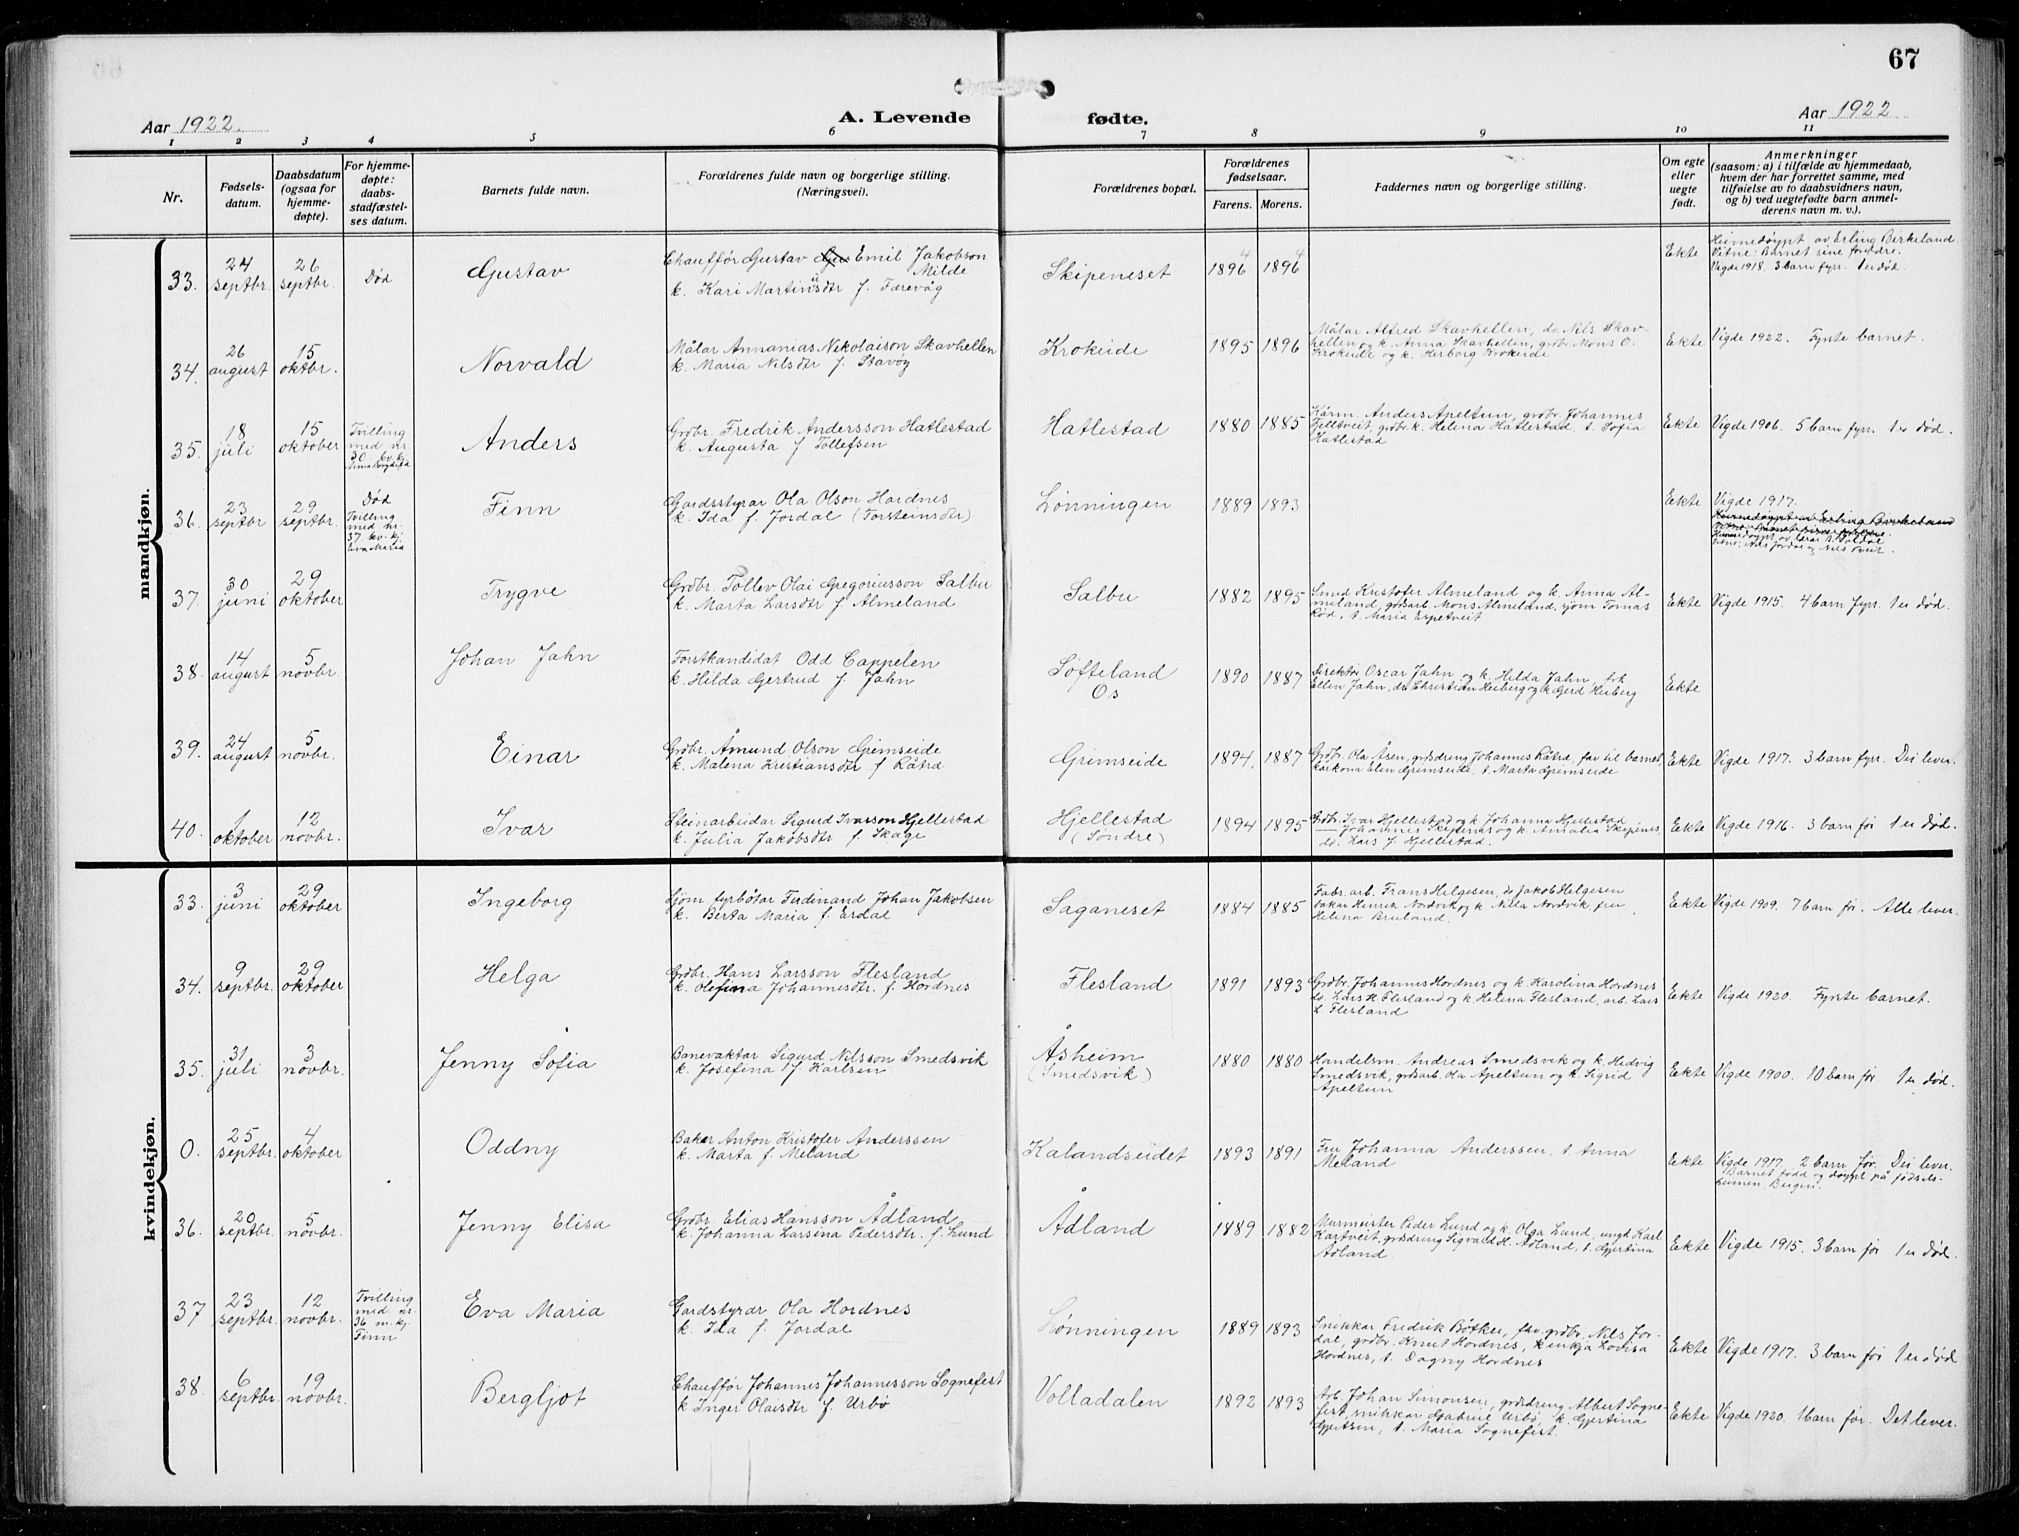 67
Aar 1922.
A. Levende fødte.
Aar 1922
1 2 3 4 5 6 7 8 9 10 11
Nr.
Fødselsdatum.
Daabsdatum (ogsaa for hjemmedøpte).
For hjemmedøpte: daabsstadfæstelses datum.
Barnets fulde navn.
Forældrenes fulde navn og borgerlige stilling. (Næringsvei).
Forældrenes bopæl.
Forældrenes fødselsaar.
Farens. Morens.
Faddernes navn og borgerlige stilling.
Om egte eller uegte født.
Anmerkninger
(saasom: a) i tilfælde av hjemmedaab, hvem der har forrettet samme, med tilføielse av to daabsvidners navn, og b) ved uegtefødte barn anmelderens navn m. v.).
mandkjøn.
33. 24 septbr. 26 septbr. Død Gustav
Chauffør Gustav Emil Jakobson Milde
k. Kari Martinsdtr f. Færevåg
Skipeneset 1896 1896 Ekte
Heimedøypt av Erling Birkeland.
Vitne: Barnet sine foreldre.
Vigde 1918. 3 barn fyrr. 1 er død.
34. 26 august 15 oktbr. Norvald
Målar Annanias Nikolaison Skavhellen
k. Maria Nilsdtr f. Stavøy
Krokeide 1895 1896
Målar Alfred Skavhellen, do Nils Skavhellen og k. Anna Skavhellen, grdbr Mons O. Krokeide og k. Herborg Krokeide
Ekte Vigde 1922. Fyrste barnet.
35. 18 juli 15 oktober Tvilling med nr. 30 kv. kj. Anders
Grdbr. Fredrik Andersson Hatlestad
k. Augusta f. Tollefsen
Hatlestad 1880 1885
Anders Apeltun, grdbr. Johannes Hjelltveit, grdbr. k. Helena Hatlestad, t. Sofia Hatlestad
Ekte Vigde 1906. 5 barn fyrr. 1 er død.
36. 23 septbr 29 septbr. Død Tvilling med nr. 37 kv. kj. Eva Maria Finn
Gardsstyrar Ola Olson Hordnes
k. Ida f. Jordal (Torsteinsdtr)
Lønningen 1889 1893 Ekte
Vigde 1917.
Heimedøypt av Erling Birkeland
37. 30 juni 29 oktober Trygve
Grdbr. Tollev Olai Gregoriusson Salbu
k. Marta Larsdtr f. Almeland
Salbu 1882 1895
Smed Kristofer Almeland og k. Anna Almeland, grdsarb. Mons Almeland, sjøm Tomas Rød, t. Maria Espetveit
Ekte Vigde 1915. 4 barn fyrr. 1 er død.
38. 14 august 5 novbr. Johan Jahn
Forstkandidat Odd Cappelen
k. Hilda Gertrud f. Jahn
Søfteland Os 1890 1887
Direktør Oscar Jahn og k. Hilda Jahn, frk Ellen Jahn, do Christian Heiberg og k. Gerd Heiberg
Ekte
39. 24 august 5 novbr. Einar
Grdbr. Åmund Olson Grimseide
k. Malena Kristiansdtr f Råtræ
Grimseide 1894. 1887
Grdbr. Ola Åsen, grdsdreng Johannes Råtræ, far til barnet, Elen Grimseide, t. Marta Grimseide
Ekte Vigde 1917. 3 barn fyrr. Dei lever.
40. 1 oktober 12 novbr. Ivar
Steinarbeidar Sigurd Ivarson Hjellestad
k. Julia Jakobsdtr f. Skage
Hjellestad (Søndre) 1894 1895
Grdbr. Ivar Hjellestad og k. Johanna Hjellestad
Johannes Skipenes og k. Amalia Skipenes, do. Lars J. Hjellestad.
Ekte Vigde 1916. 3 barn før 1 er død.
kvindekjøn.
33. 3 juni 29 oktober Ingeborg
Sjøm. fyrbøtar Ferdinand Johan Jakobsen
k. Berta Maria f. Erdal
Saganeset 1884 1885
Fabr. arb. Frans Helgesen, do Jakob Helgesen bakar Henrik Nordvik og k Nilla Nordvik, fru Helena Bruland.
Ekte Vigde 1909. 7 barn før. Alle lever.
34. 9 septbr. 29 oktober Helga
Grdbr. Hans Larsson Flesland
k. Olefina Johannesdtr. f. Hordnes
Flesland 1891 1893
Grdbr. Johannes Hordnes og k. Karolina Hordnes do. Lars H Flesland og k. Helena Flesland, arb. Lars L. Flesland
Ekte Vigde 1920. Fyrste barnet.
35. 31 juli 3 novbr. Jenny Sofia
Banevaktar Sigurd Nilsson Smedsvik
k. Josefina f. Karlsen
Åsheim (Smedsvik) 1880 1880
Handelsm. Andreas Smedsvik og k. Hedvig Smedsvik, grdsarb. Ola Apeltun og k. Sigrid Apeltun
Ekte Vigde 1900. 10 barn før 1 er død.
0. 25 septbr. 4 oktober Oddny
Bakar Anton Kristofer Anderssen
k. Marta f. Meland
Kalandseidet 1893 1891
Fru Johanna Anderssen, t. Anna Meland
Ekte Vigde 1917. 2 barn før. Dei lever.
Barnet fødd og døypt på fødselsheimen Bergen.
36. 20 septbr. 5 novbr. Jenny Elisa
Grdbr Elias Hansson Ådland
k. Johanna Larsina Pedersdtr. f. Lund
Ådland 1889 1882
Murmeister Peder Lund og k. Olga Lund, ungk Karl Kartveit, grdsdreng Sigvald H. Ådland, t. Gjertina Ådland.
Ekte Vigde 1915. 3 barn før 1 er død.
37 23 septbr. 12 novbr. Tvilling med nr. 36 m. kj. Finn Eva Maria
Gardstyrar Ola Hordnes
k. Ida f. Jordal
Lønningen 1889 1893
Snikkar Fredrik Bøtker, fhv. grdbr. Nils Jordal, grdbr. Knut Hordnes, enkja Lovisa Hordnes, t. Dagny Hordnes
Ekte Vigde 1917. 3 barn før 1 er død
38. 6 septbr. 19 novbr. Bergljot
Chauffør Johannes Johannesson Sognefest
k Inger Olaisdtr f. Urbø
Volladalen 1892 1893
Arb. Johan Simonsen, grdsdreng Albert Sognefest, snikkar Gabriel Urbø, k. Gjertina Gjertsen, t. Maria Sognefest.
Ekte Vigde 1920. 1 barn før. Det lever.